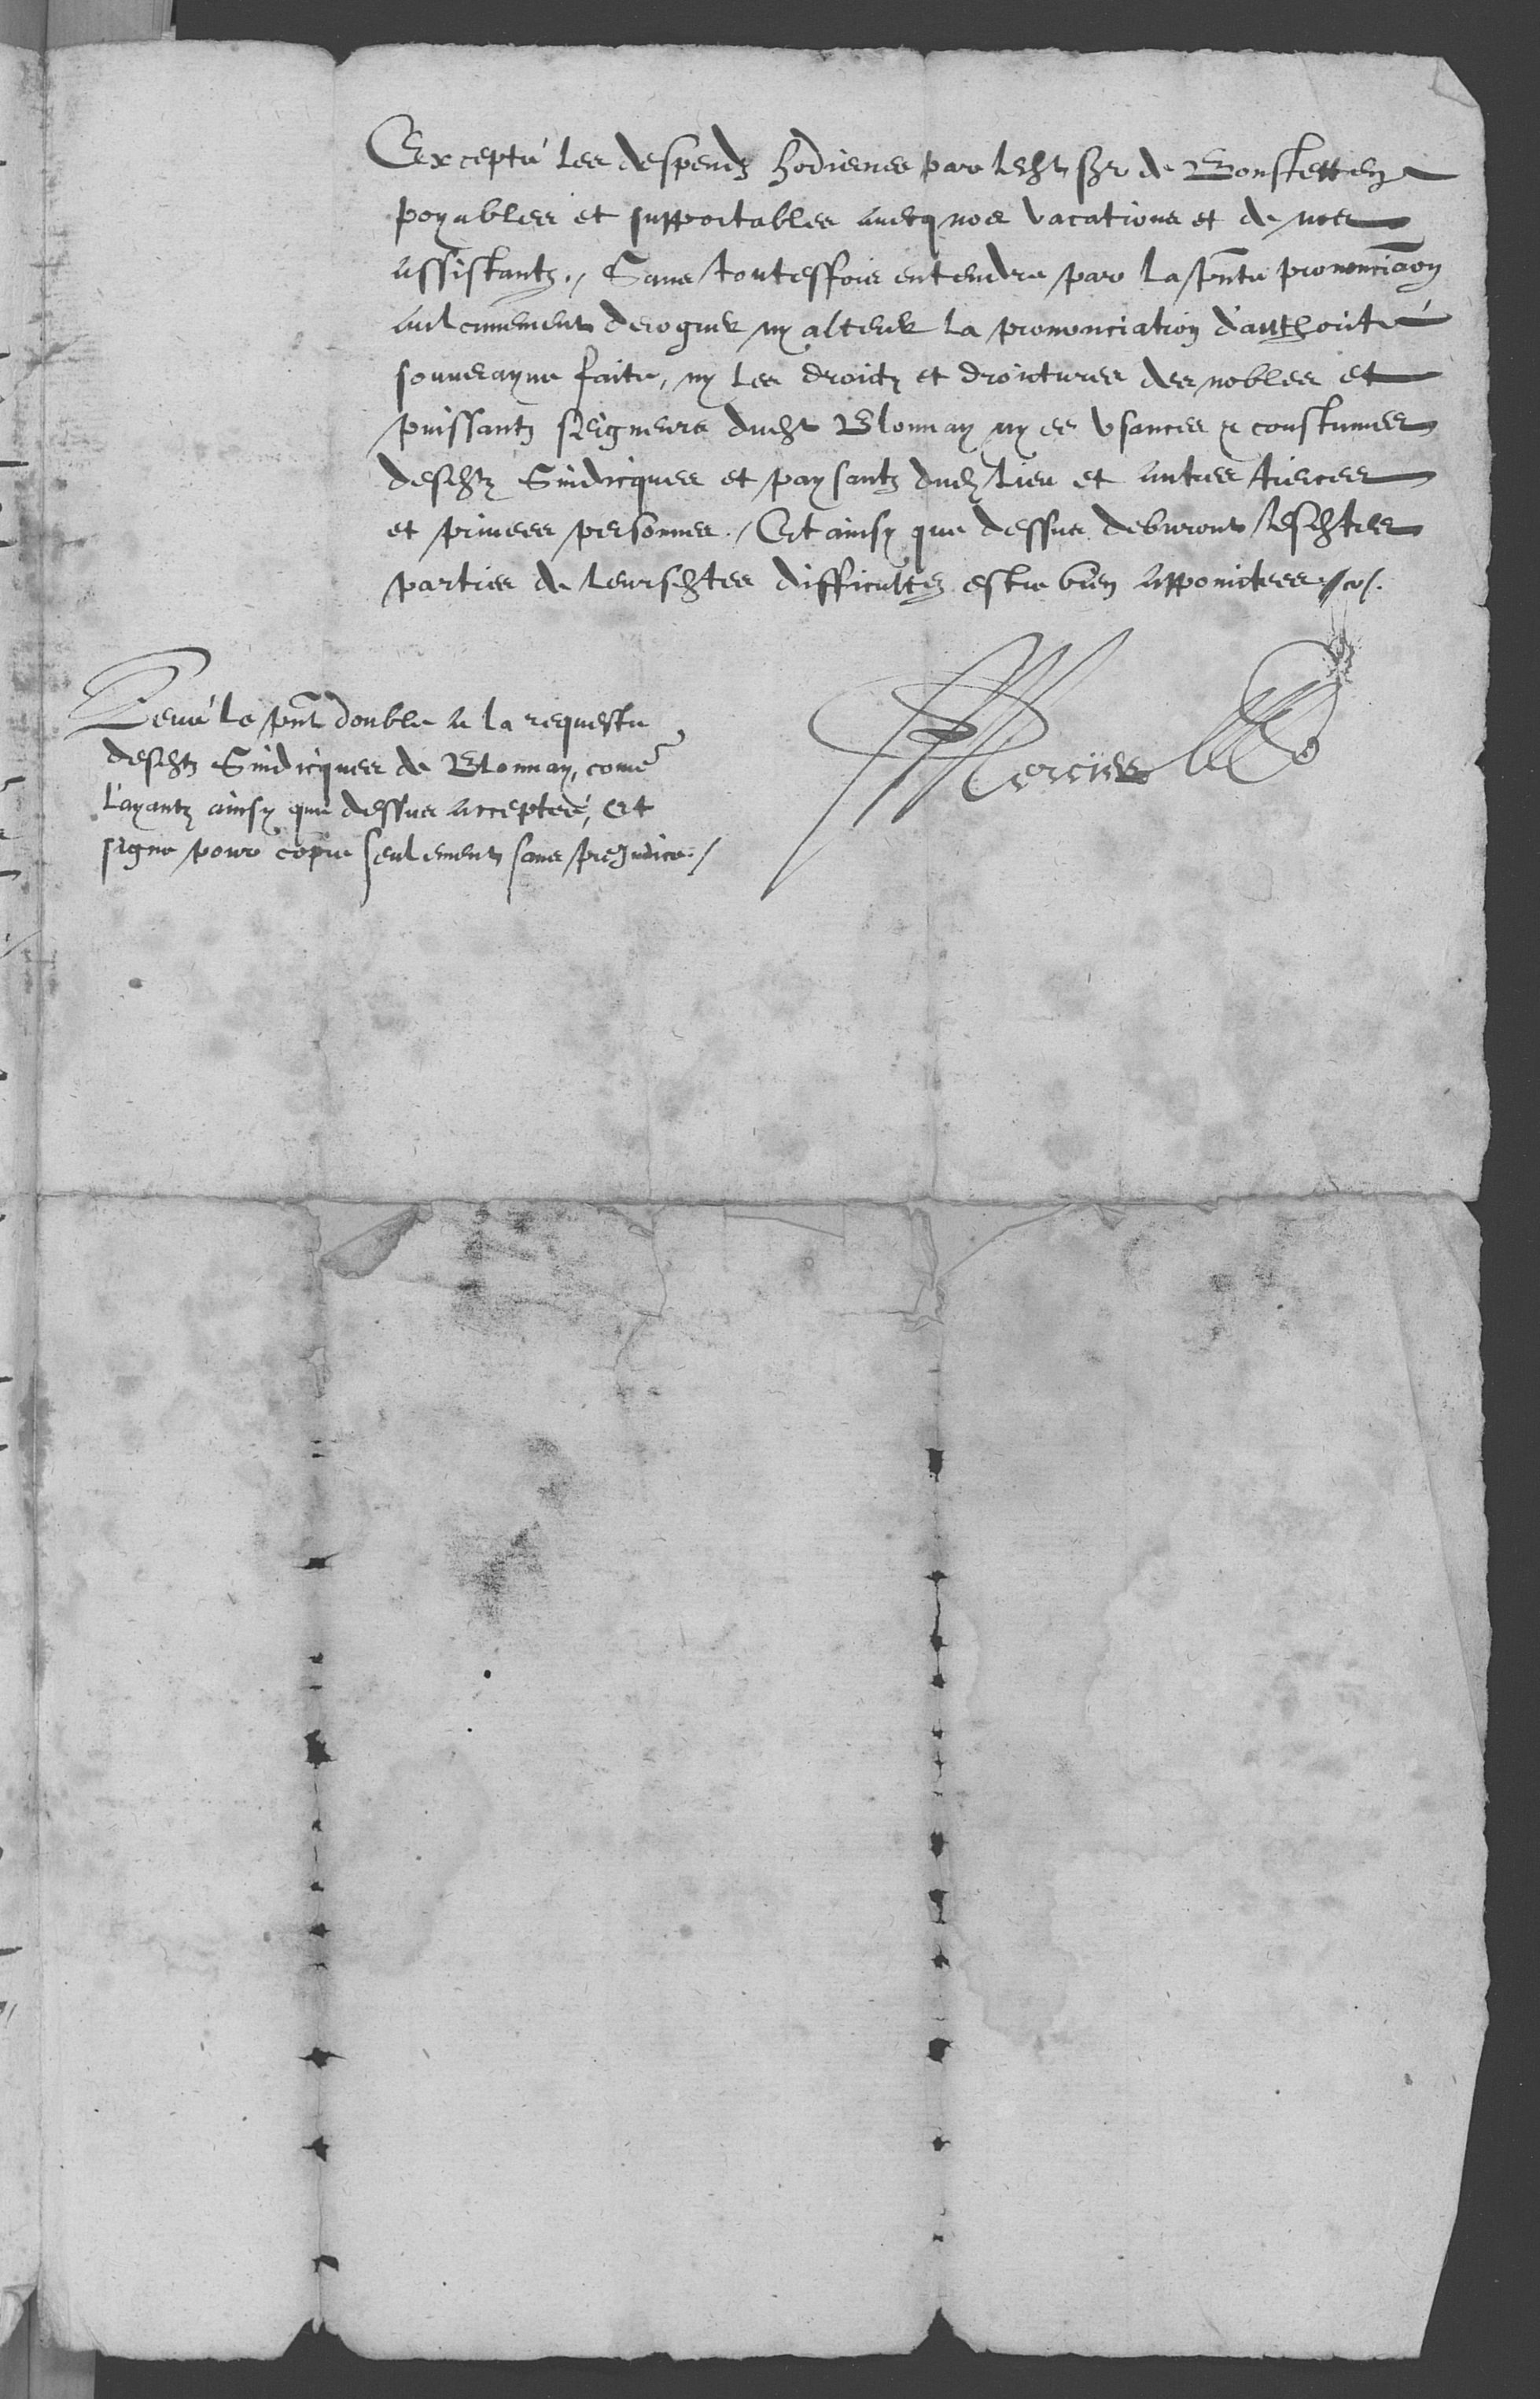 Excepté les despendz hodiernes par ledt sgr de Bonstetten
poyables et supportables avecq nos vacations et de nos
assistantz., Sans touteffois entendre par la pnte prononciaon
aulcunement deroguer ny alterer la prononciation d'authorité
souverayne faite, ny les droictz et droictures des nobles et
puissantz seigneurs dudt Blonnay ny es usances & coustumes
desdtz Sindicques et paysantz dud lieu et autres tierces
et privees personnes. / Et ainsy que dessus debvront lesdtes
parties de leursdtes difficultez estre bien appoinctees
Levé le pnt double a la requeste
desdtz Sindicques de Blonnay, come
l'ayantz ainsy que dessus accepteé, et
signe pour copie seulement sans prejudice. /
Mercier